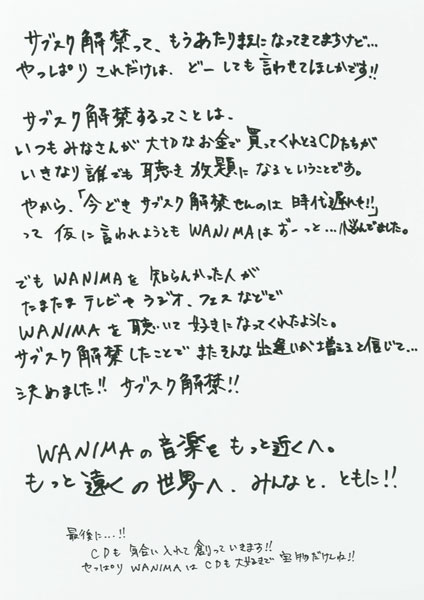 サブスク解禁って、もうあたりまえになってきてまちけど…
やっぱり これだけは、どーしても言わせてほしかです!!
サブスク解禁するってことは、
いつもみなさんが大切なお金で買ってくれとるCDたちが
いきなり誰でも聴き放題になるということです。
やから、「今どき サブスク解禁せんのは 時代遅れも!!」
って 仮に言われようとも WANIMAはずーっと…悩んでました。
でも WANIMAを 知らんかった人が
たまたま テレビや ラジオ、フェスなどで
WANIMAを 聴いて 好きになってくれたように。
サブスク解禁したことで またそんな出逢いが増えると信じて…
決めました!! サブスク解禁!!
WANIMAの音楽を もっと近くへ。
もっと遠くの世界へ、みんなと、ともに!!
最後に…!!
CDも 気合い入れて創っていきます!!
やっぱり WANIMAは CDも大好きで 宝物だけんね!!